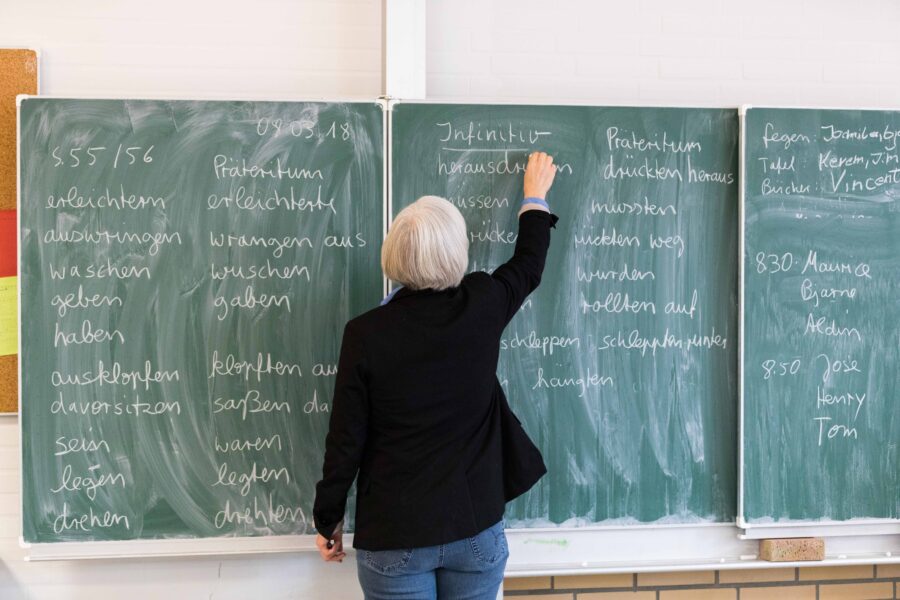 09.03.18
S. 55/56
Präteritum
erleichtern erleichterte
auswringen wrangen aus
waschen wuschen
geben gaben
haben
ausklopfen klopften au
davorsitzen saßen da
sein waren
legen legten
drehen drehten
Infinitiv Präteritum
drückten heraus
mussten
rückten weg
wurden
rollten auf
schleppen schleppten runter
hängten
Fegen:
Tafel Kerem, Jim
Bücher: Vincent
8.30 Maurice
Bjarne
Aldin
8.50 Jose
Henry
Tom